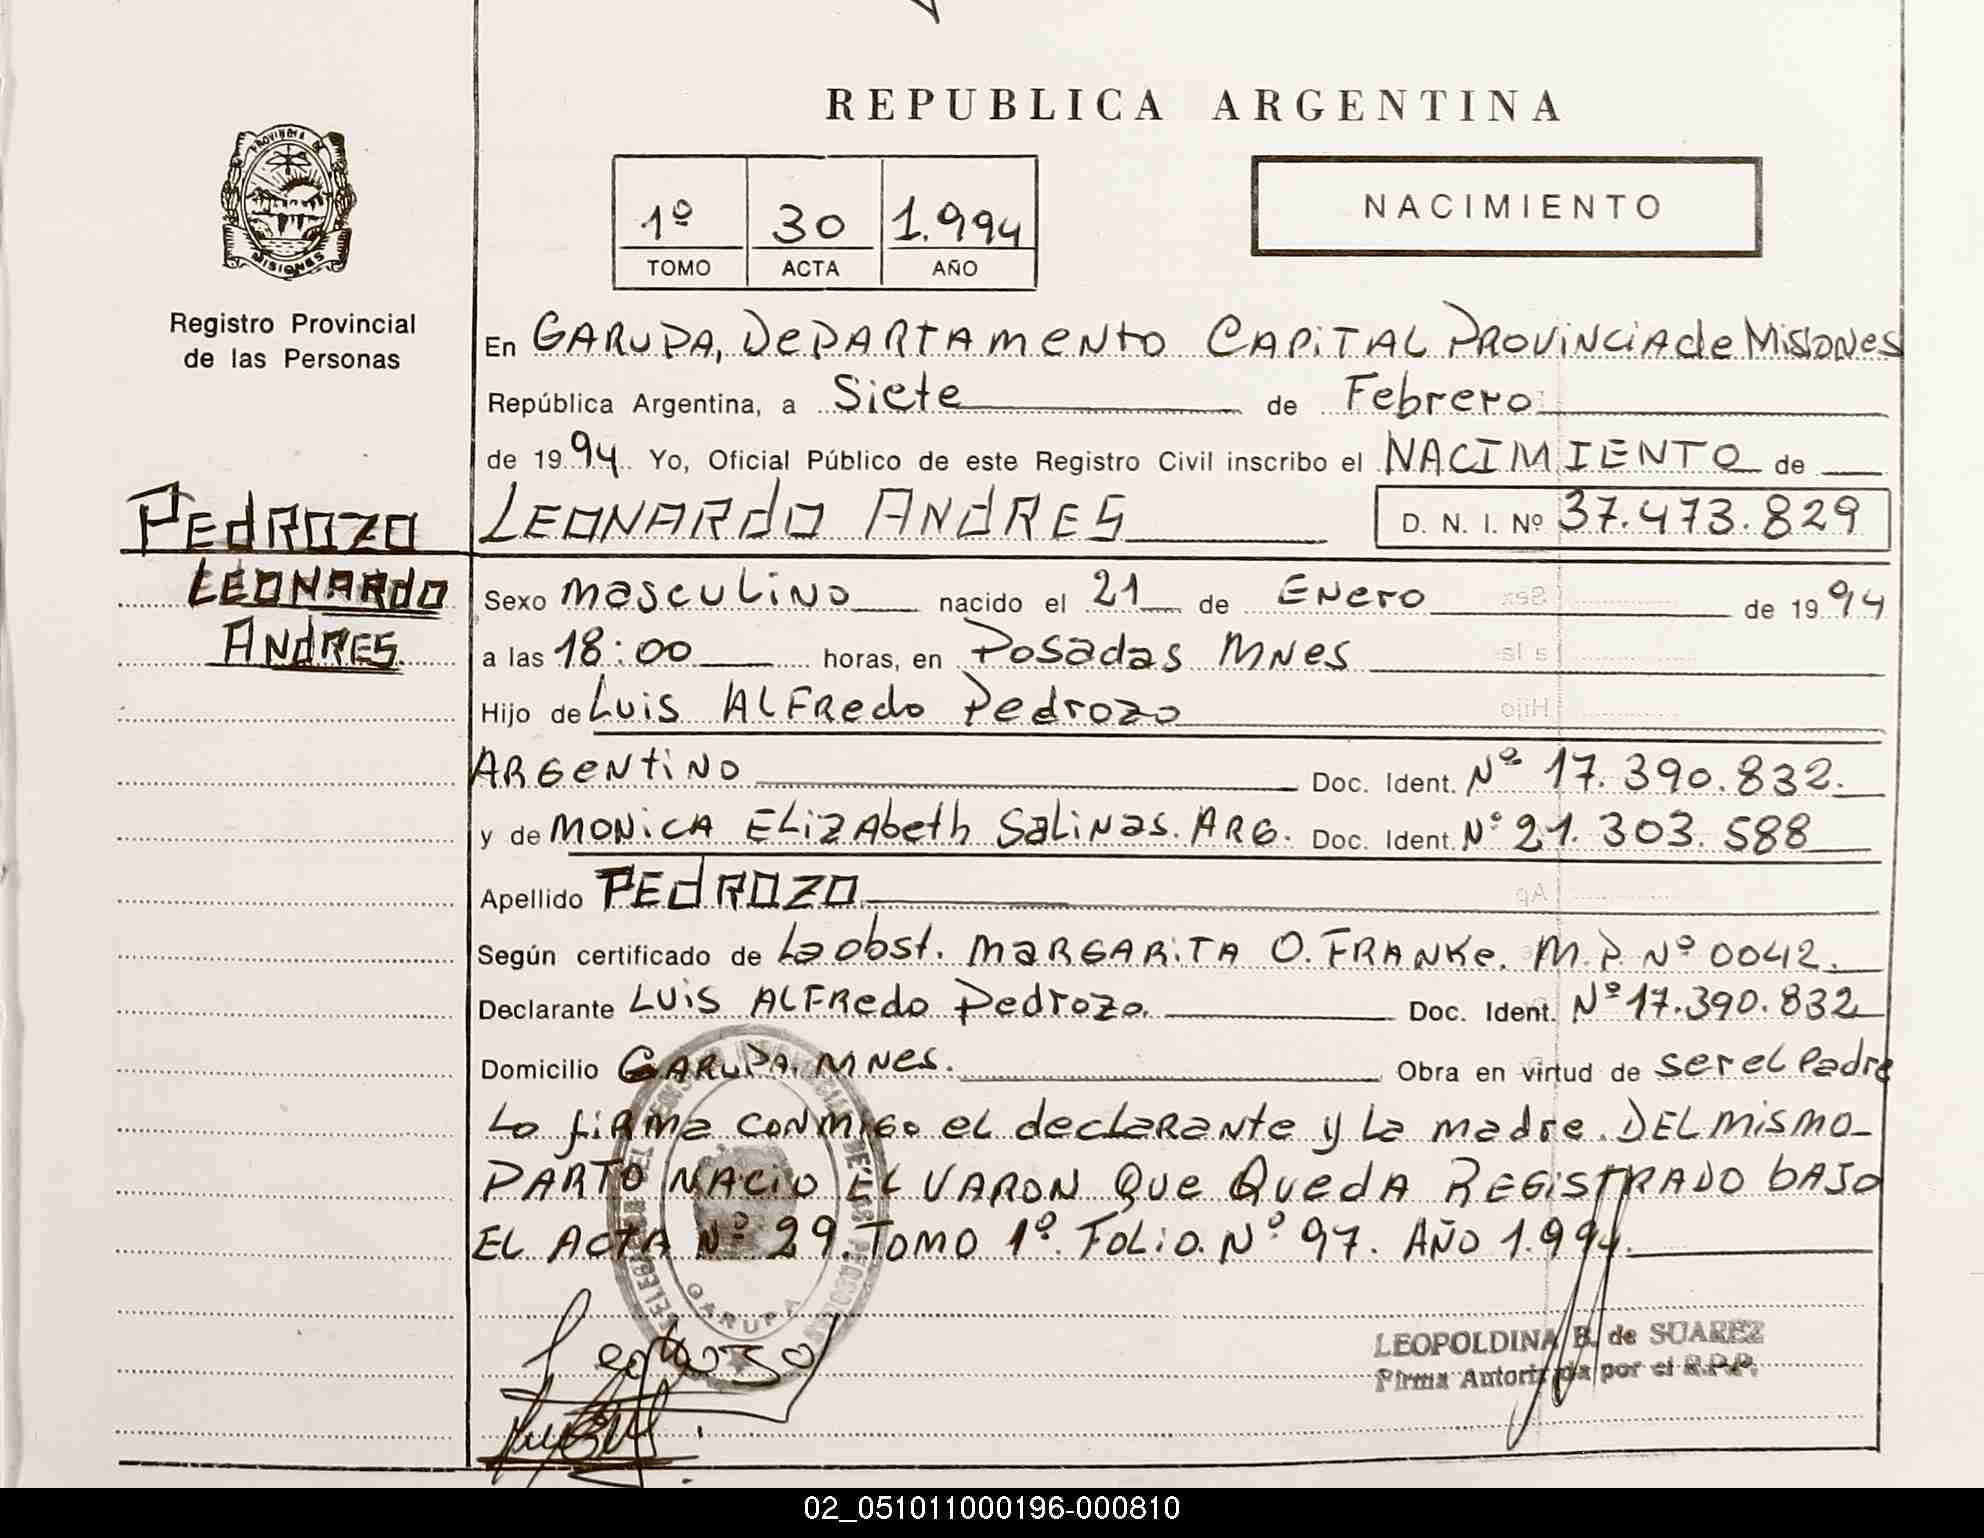 REPUBLICA ARGENTINA
PROVINCIA DE
MISIONES
Registro Provincial
de las Personas
1º 30 1.994
TOMO ACTA AÑO
NACIMIENTO
En GARUPA, DePARTAmeNto CAPiTAL PROViNCiA de MisioNes
República Argentina, a Siete de Febrero
de 1994 Yo, Oficial Público de este Registro Civil inscribo el NACIMIENTO de
LEONARdO ANdRES D. N. I. Nº 37.473.829
PEdROZO
LEONARdO
ANdRES.
Sexo masculino nacido el 21 de Enero de 1994
a las 18:00 horas, en Posadas MNes
Hijo de Luis ALFRedo Pedrozo
ARGeNtiNO Doc. Ident. Nº 17.390.832.
y de MONiCA ELiZAbeth SaLiNas. ARG. Doc. Ident. Nº 21.303.588
Apellido PEdROZO
Según certificado de La obst. MARGARiTA O. FRANKe. M.P. Nº 0042.
Declarante Luis ALFRedo Pedrozo. Doc. Ident. Nº 17.390.832
Domicilio GARUPA. MNes. Obra en virtud de ser el Padre
Lo fiRma coNMiGo el declaRaNte y La madre. DEL mismo
PARTO NACiO EL VARON QUe QuedA REGiSTRADO bAJO
EL ACTA Nº 29. TOMO 1º. FOLiO. Nº 97. AÑO 1.994.
GARUPA
Pedrozo
LEOPOLDINA B. de SUAREZ
Firma Autorizada por el R.P.P.
02_051011000196-000810